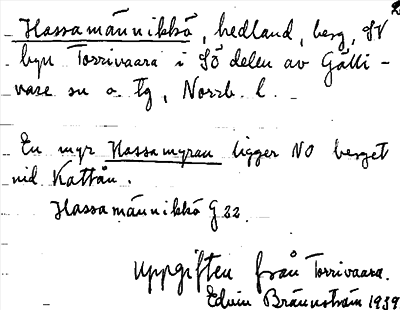 Hassamännikkö, hedland, berg, SV
byn Torrivaara i SÖ delen av Gälli-
vare sn o. tg, Norrb. l.
En myr Hassamyran ligger NO berget
vid Kattån.
Hassamännikkö G 22.
Uppgiften från Torrivaara.
Edvin Brännström 1939